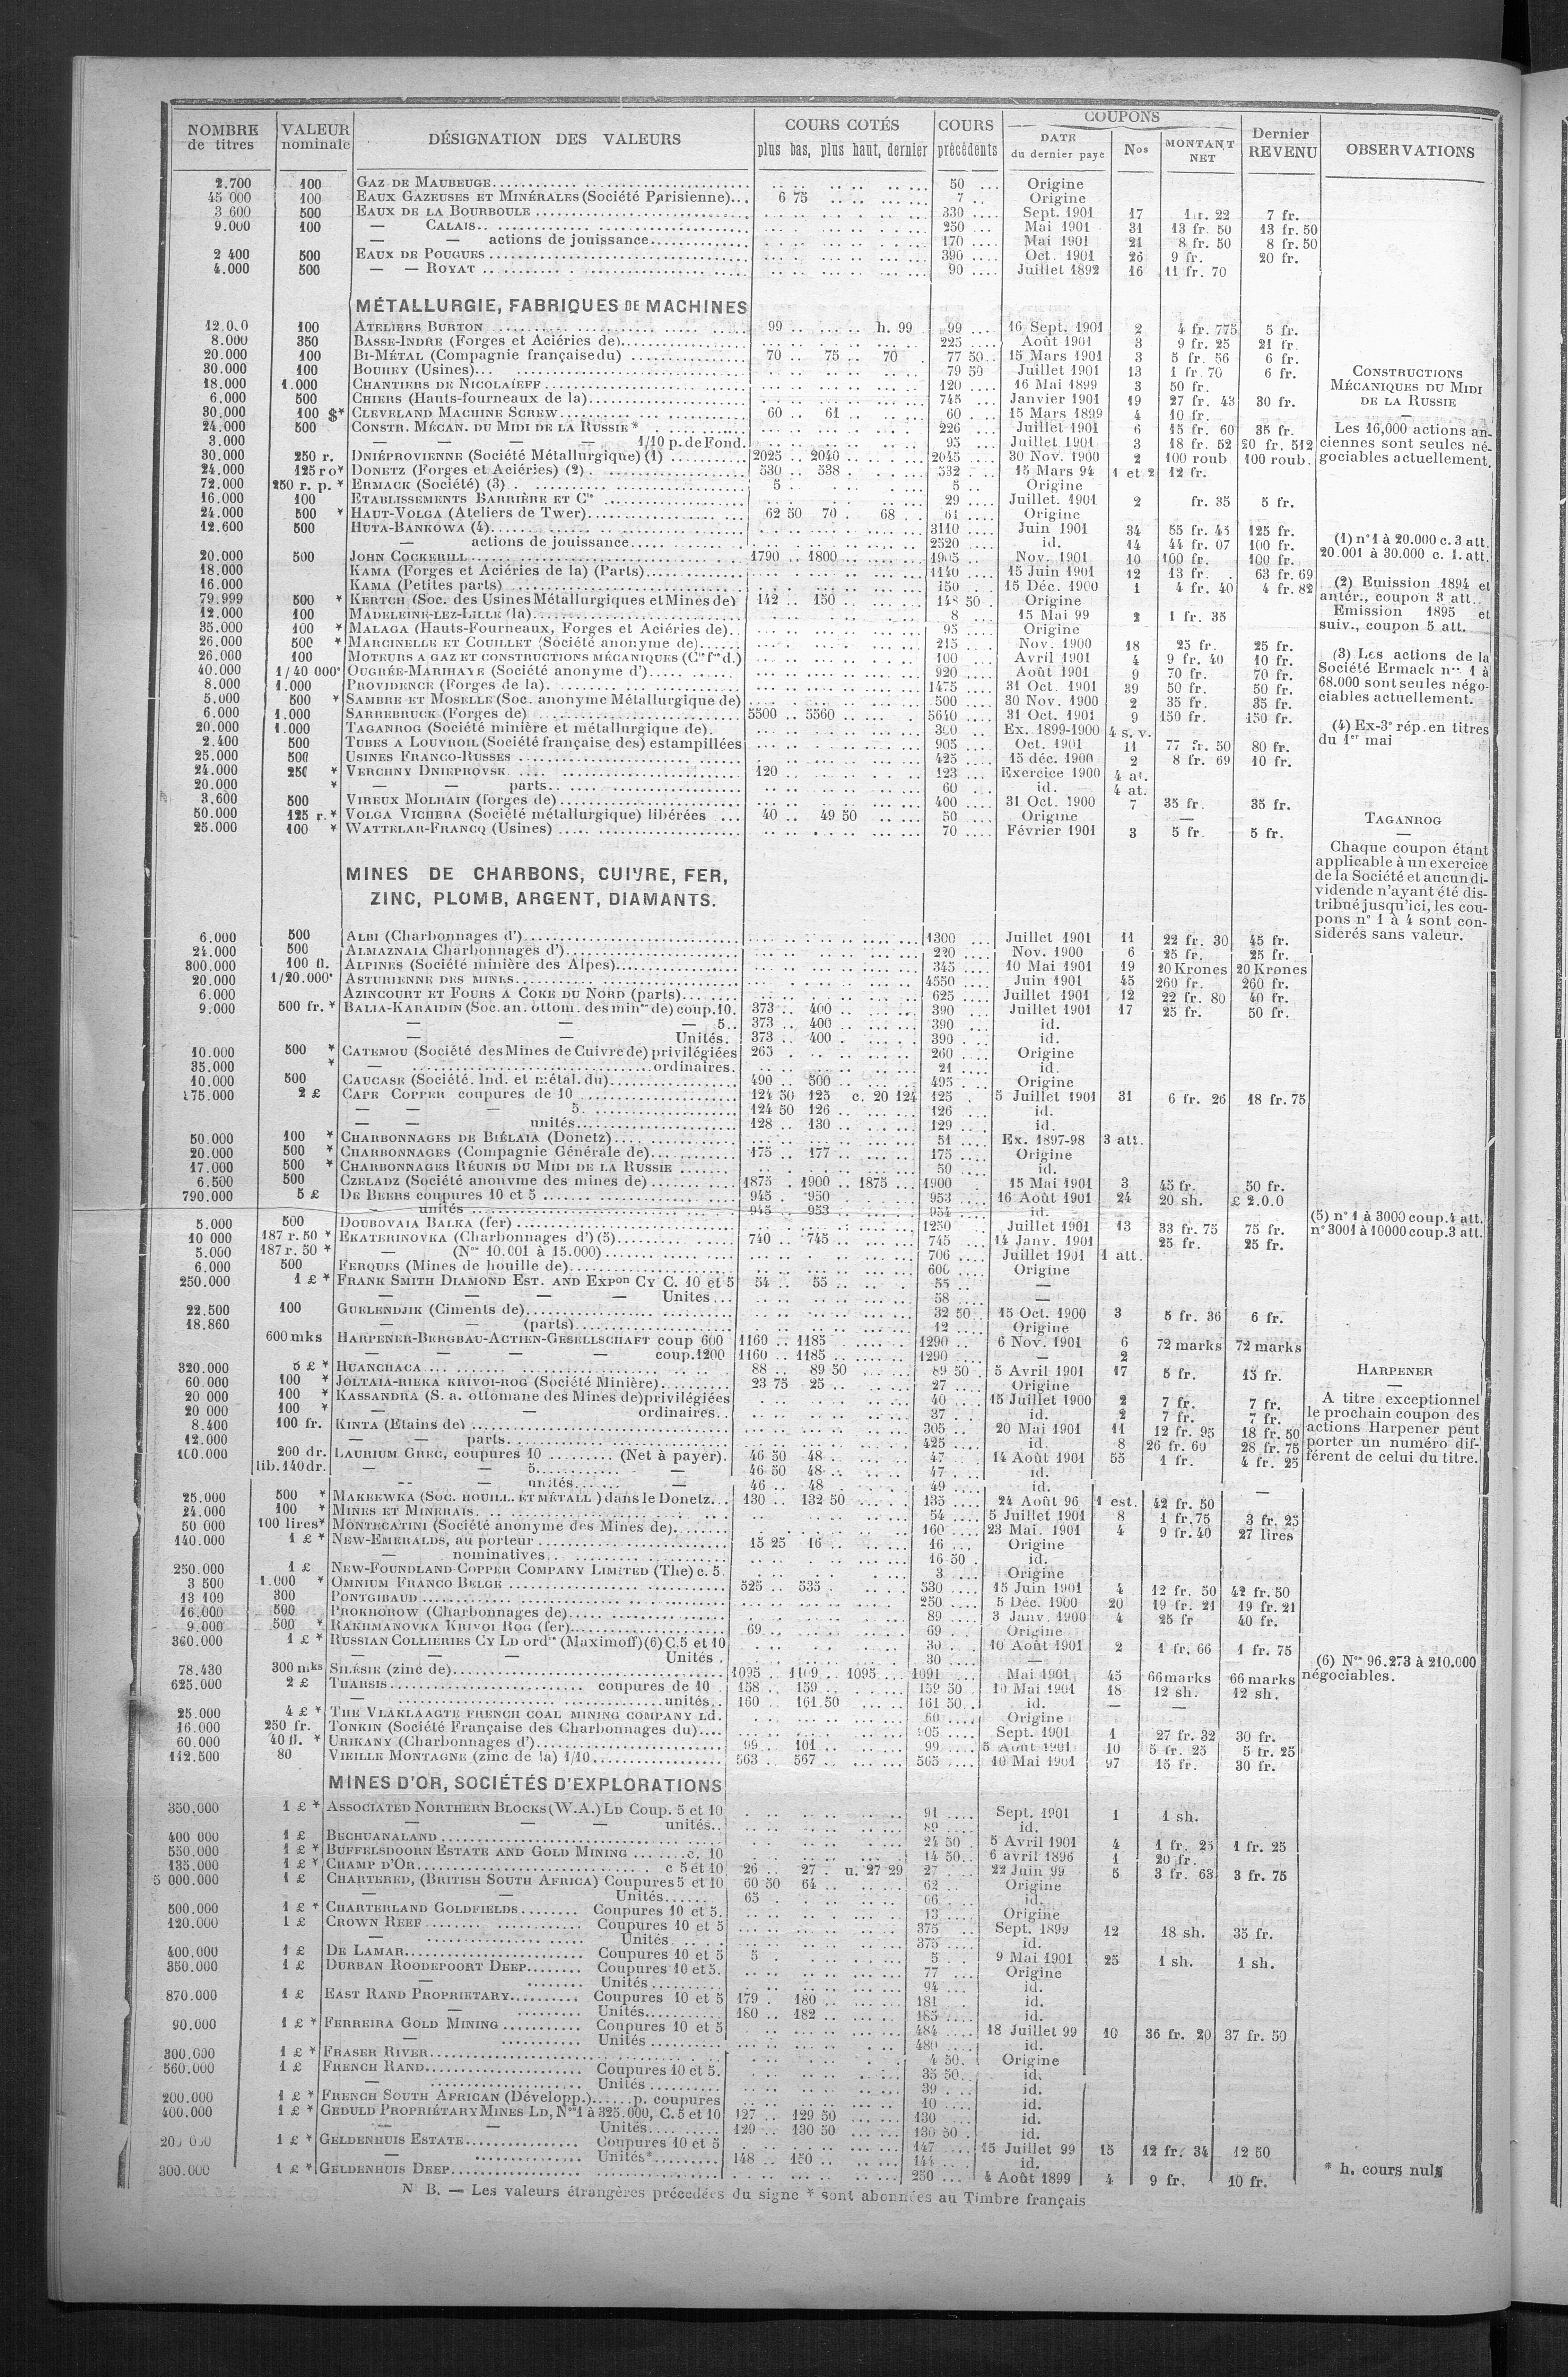 NOMBRE de titres | VALEUR nominale | DÉSIGNATION DES VALEURS | COURS COTÉS plus bas, plus haut, dernier | COURS précédents | COUPONS DATE du dernier payé | Nos | MONTANT NET | Dernier REVENU | OBSERVATIONS
2.700 100 GAZ DE MAUBEUGE 50 Origine
45 000 100 EAUX GAZEUSES ET MINÉRALES (Société Parisienne) 6 75 7 Origine
3 600 500 EAUX DE LA BOURBOULE 330 Sept. 1901 17 22 7 fr.
9.000 100 — CALAIS 250 Mai 1901 31 13 fr. 50 13 fr. 50
— — actions de jouissance 170 Mai 1901 21 8 fr. 50 8 fr. 50
2 400 500 EAUX DE POUGUES 390 Oct. 1901 26 9 fr. 20 fr.
4.000 500 — — ROYAT 90 Juillet 1892 16 11 fr. 70
MÉTALLURGIE, FABRIQUES DE MACHINES
100 ATELIERS BURTON 99 h. 99 99 16 Sept. 1901 2 4 fr. 775 5 fr.
8.000 350 BASSE-INDRE (Forges et Aciéries de) 225 Août 1901 3 9 fr. 25 21 fr.
20.000 100 BI-MÉTAL (Compagnie française du) 70 75 70 77 50 15 Mars 1901 3 5 fr. 56 6 fr.
30.000 100 BOUHEY (Usines) 79 50 Juillet 1901 13 1 fr. 70 6 fr.
18.000 1.000 CHANTIERS DE NICOLAÏEFF 120 16 Mai 1899 3 50 fr.
6.000 500 CHIERS (Hauts-fourneaux de la) 745 Janvier 1901 19 27 fr. 43 30 fr.
30.000 100 $* CLEVELAND MACHINE SCREW 60 61 60 15 Mars 1899 4 10 fr.
24.000 500 CONSTR. MÉCAN. DU MIDI DE LA RUSSIE* 226 Juillet 1901 6 15 fr. 60 35 fr.
3.000 — — — — 1/10 p. de Fond. 95 Juillet 1901 3 18 fr. 52 20 fr. 512
30.000 250 r. DNIÉPROVIENNE (Société Métallurgique) (1) 2025 2040 2045 30 Nov. 1900 2 100 roub 100 roub.
24.000 125 ro* DONETZ (Forges et Aciéries) (2) 530 538 532 15 Mars 94 1 et 2 12 fr.
72.000 250 r. p. * ERMACK (Société) (3) 5 5 Origine
16.000 100 ETABLISSEMENTS BARRIÈRE ET Cie 29 Juillet. 1901 2 fr. 35 5 fr.
24.000 500 * HAUT-VOLGA (Ateliers de Twer) 62 50 70 68 61 Origine
12.600 500 HUTA-BANKOWA (4) 3110 Juin 1901 34 55 fr. 43 125 fr.
— actions de jouissance 2520 id. 14 44 fr. 07 100 fr.
20.000 500 JOHN COCKERILL 1790 1800 1905 Nov. 1901 10 100 fr. 100 fr.
18.000 KAMA (Forges et Aciéries de la) (Parts) 1140 15 Juin 1901 12 13 fr. 63 fr. 69
16.000 KAMA (Petites parts) 150 15 Déc. 1900 1 4 fr. 40 4 fr. 82
79.999 500 * KERTCH (Soc. des Usines Métallurgiques et Mines de) 142 150 148 50 Origine
12.000 100 MADELEINE-LEZ-LILLE (la) 8 15 Mai 99 2 1 fr. 35
35.000 100 * MALAGA (Hauts-Fourneaux, Forges et Aciéries de) 95 Origine
26.000 500 * MARCINELLE ET COUILLET (Société anonyme de) 215 Nov. 1900 18 25 fr. 25 fr.
26.000 100 MOTEURS A GAZ ET CONSTRUCTIONS MÉCANIQUES (Cie fse d.) 100 Avril 1901 4 9 fr. 40 10 fr.
40.000 1/40 000e OUGRÉE-MARIHAYE (Société anonyme d') 920 Août 1901 9 70 fr. 70 fr.
8.000 1.000 PROVIDENCE (Forges de la) 1475 31 Oct. 1901 39 50 fr. 50 fr.
5.000 500 * SAMBRE ET MOSELLE (Soc. anonyme Métallurgique de) 500 30 Nov. 1900 2 35 fr. 35 fr.
6.000 1.000 SARREBRUCK (Forges de) 5500 5560 5610 31 Oct. 1901 9 150 fr. 150 fr.
20.000 1.000 TAGANROG (Société minière et métallurgique de) Ex. 1899-1900 4 s. v.
2.400 500 TUBES A LOUVROIL (Société française des) estampillées 905 Oct. 1901 11 77 fr. 50 80 fr.
25.000 500 USINES FRANCO-RUSSES 425 15 déc. 1900 2 8 fr. 69 10 fr.
24.000 250 * VERCHNY DNIEPROVSK 120 123 Exercice 1900 4 at.
20.000 * — — parts 60 id. 4 at.
3.600 500 VIREUX MOLHAIN (forges de) 400 31 Oct. 1900 7 35 fr. 35 fr.
50.000 125 r. * VOLGA VICHERA (Société métallurgique) libérées 40 49 50 50 Origine —
25.000 100 * WATTELAR-FRANCQ (Usines) 70 Février 1901 3 5 fr. 5 fr.
CONSTRUCTIONS
MÉCANIQUES DU MIDI
DE LA RUSSIE
—
Les 16,000 actions an-
ciennes sont seules né-
gociables actuellement.
(1) n° 1 à 20.000 c. 3 att.
20.001 à 30.000 c. 1. att.
(2) Emission 1894 et
antér., coupon 3 att.
Emission 1895 et
suiv., coupon 5 att.
(3) Les actions de la
Société Ermack nos 1 à
68.000 sont seules négo-
ciables actuellement.
(4) Ex-3e rép. en titres
du 1er mai
TAGANROG
—
Chaque coupon étant
applicable à un exercice
de la Société et aucun di-
vidende n'ayant été dis-
tribué jusqu'ici, les cou-
pons n° 1 à 4 sont con-
sidérés sans valeur.
MINES DE CHARBONS, CUIVRE, FER,
ZINC, PLOMB, ARGENT, DIAMANTS.
6.000 500 ALBI (Charbonnages d') 1300 Juillet 1901 11 22 fr. 30 45 fr.
24.000 500 ALMAZNAIA Charbonnages d') 220 Nov. 1900 6 25 fr. 25 fr.
300.000 100 fl. ALPINES (Société minière des Alpes) 345 10 Mai 1901 19 20 Krones 20 Krones
20.000 1/20.000e ASTURIENNE DES MINES 4550 Juin 1901 45 260 fr. 260 fr.
6.000 AZINCOURT ET FOURS A COKE DU NORD (parts) 625 Juillet 1901 12 22 fr. 80 40 fr.
9.000 500 fr. * BALIA-KARAIDIN (Soc. an. ottom. des mines de) coup. 10. 373 400 390 Juillet 1901 17 25 fr. 50 fr.
— — — 5 373 400 390 id.
— — Unités. 373 400 390 id.
10.000 500 * CATEMOU (Société des Mines de Cuivre de) privilégiées 265 260 Origine
35.000 * — ordinaires. 21 id.
10.000 500 CAUCASE (Société. Ind. et métal. du) 490 500 495 Origine
175.000 2 £ CAPE COPPER coupures de 10 124 50 125 c. 20 124 125 5 Juillet 1901 31 6 fr. 26 18 fr. 75
— — — 5. 124 50 126 126 id.
— — unités 128 130 129 id.
50.000 100 * CHARBONNAGES DE BIÉLAÏA (Donetz) 51 Ex. 1897-98 3 att.
20.000 500 * CHARBONNAGES (Compagnie Générale de) 175 177 175 Origine
17.000 500 * CHARBONNAGES RÉUNIS DU MIDI DE LA RUSSIE 50 id.
6.500 500 CZELADZ (Société anonyme des mines de) 1875 1900 1875 1900 15 Mai 1901 3 45 fr. 50 fr.
790.000 5 £ DE BEERS coupures 10 et 5 945 950 953 16 Août 1901 24 20 sh. £ 2.0.0
unités 945 953 954 id.
5.000 500 DOUBOVAIA BALKA (fer) 1250 Juillet 1901 13 33 fr. 75 75 fr.
10 000 187 r. 50 * EKATERINOVKA (Charbonnages d') (5) 740 745 745 14 Janv. 1901 25 fr. 25 fr.
5.000 187 r. 50 * — (Nos 10.001 à 15.000) 706 Juillet 1901 1 att.
6.000 500 FERQUES (Mines de houille de) 600 Origine
250.000 1 £ * FRANK SMITH DIAMOND EST. AND EXPon CY C. 10 et 5 54 55 55 —
— — — — Unites 58 —
22.500 100 GUELENDJIK (Ciments de) 32 50 15 Oct. 1900 3 5 fr. 36 6 fr.
18.860 — — (parts) 12 Origine
600 mks HARPENER-BERGBAU-ACTIEN-GESELLSCHAFT coup 600 1160 1185 1290 6 Nov. 1901 6 72 marks 72 marks
— — — — coup. 1200 1160 1185 1290 — 2
320.000 5 £ * HUANCHACA 88 89 50 89 50 5 Avril 1901 17 5 fr. 15 fr.
60.000 100 * JOLTAIA-RIEKA KRIVOI-ROG (Société Minière) 23 75 25 27 Origine
20 000 100 * KASSANDRA (S. a. ottomane des Mines de) privilégiées 40 15 Juillet 1900 2 7 fr. 7 fr.
20 000 100 * — — ordinaires 37 id. 2 7 fr. 7 fr.
8.400 100 fr. KINTA (Etains de) 305 20 Mai 1901 11 12 fr. 95 18 fr. 50
12.000 — — parts 425 id. 8 26 fr. 60 28 fr. 75
100.000 200 dr. LAURIUM GREC, coupures 10 (Net à payer). 46 50 48 47 14 Août 1901 55 1 fr. 4 fr. 25
lib. 140 dr. — — 5 — 46 50 48 47 id.
— — unités — 46 48 49 id.
25.000 500 * MAKEEWKA (SOC. HOUILL. ET MÉTALL ) dans le Donetz 130 132 50 135 24 Août 96 1 est. 42 fr. 50 —
24.000 100 * MINES ET MINERAIS 54 5 Juillet 1901 8 1 fr. 75 3 fr. 25
50 000 100 lires* MONTECATINI (Société anonyme des Mines de) 160 23 Mai. 1901 4 9 fr. 40 27 lires
140.000 1 £ * NEW-EMERALDS, au porteur 15 25 16 16 Origine
— nominatives 16 50 id.
250.000 1 £ NEW-FOUNDLAND COPPER COMPANY LIMITED (The) c. 5 3 Origine
3 500 1.000 * OMNIUM FRANCO BELGE 525 535 530 15 Juin 1901 4 12 fr. 50 42 fr. 50
13 100 300 PONTGIBAUD 250 5 Déc. 1900 20 19 fr. 21 19 fr. 21
16.000 500 PROKHOROW (Charbonnages de) 89 3 Janv. 1900 4 25 fr 40 fr.
9.000 500 * RAKHMANOVKA KRIVOI ROG (fer) 69 69 Origine
360.000 1 £ * RUSSIAN COLLIERIES CY LD ordres (Maximoff) (6) C. 5 et 10 30 10 Août 1901 2 1 fr. 66 1 fr. 75
— — — Unités 30 —
78.430 300 mks SILÉSIE (zinc de) 1095 1109 1095 1091 Mai 1901 45 66 marks 66 marks
625.000 2 £ THARSIS coupures de 10 158 159 159 50 10 Mai 1901 18 12 sh. 12 sh.
— unités 160 161 50 161 50 id. — —
25.000 4 £ * THE VLAKLAAGTE FRENCH COAL MINING COMPANY Ld. 60 Origine
16.000 250 fr. TONKIN (Société Française des Charbonnages du) Sept. 1901 1 27 fr. 32 30 fr.
60.000 40 fl. * URIKANY (Charbonnages d') 99 101 99 5 Août 1901 10 5 fr. 25 5 fr. 25
112.500 80 VIEILLE MONTAGNE (zinc de la) 1/10 563 567 565 10 Mai 1901 97 15 fr. 30 fr.
(5) n° 1 à 3000 coup. 4 att.
n° 3001 à 10000 coup. 3 att.
HARPENER
—
A titre exceptionnel
le prochain coupon des
actions Harpener peut
porter un numéro dif-
férent de celui du titre.
(6) Nos 96.273 à 210.000
négociables.
MINES D'OR, SOCIÉTÉS D'EXPLORATIONS
350.000 1 £ * ASSOCIATED NORTHERN BLOCKS (W.A.) LD Coup. 5 et 10 91 Sept. 1901 1 1 sh.
— — — unités 89 id.
400 000 1 £ BECHUANALAND 24 50 5 Avril 1901 4 1 fr. 25 1 fr. 25
550.000 1 £ * BUFFELSDOORN ESTATE AND GOLD MINING c. 10 14 50 6 avril 1896 1 20 fr.
135.000 1 £ * CHAMP D'OR c 5 et 10 26 27 u. 27 29 27 22 Juin 99 5 3 fr. 63 3 fr. 75
5 000.000 1 £ CHARTERED, (BRITISH SOUTH AFRICA) Coupures 5 et 10 60 50 64 62 Origine
— — Unités 65 66 id.
500.000 1 £ * CHARTERLAND GOLDFIELDS Coupures 10 et 5. 13 Origine
120.000 1 £ CROWN REEF Coupures 10 et 5 375 Sept. 1899 12 18 sh. 35 fr.
— Unités 375 id.
400.000 1 £ DE LAMAR Coupures 10 et 5 5 5 9 Mai 1901 25 1 sh. 1 sh.
350.000 1 £ DURBAN ROODEPOORT DEEP Coupures 10 et 5. 77 Origine
— Unités 94 id.
870.000 1 £ EAST RAND PROPRIETARY Coupures 10 et 5 179 180 181 id.
— Unités 180 182 185 id.
90.000 1 £ * FERREIRA GOLD MINING Coupures 10 et 5 484 18 Juillet 99 10 36 fr. 20 37 fr. 50
— Unités 480 id.
300.000 1 £ * FRASER RIVER 4 50 Origine
560.000 1 £ FRENCH RAND Coupures 10 et 5. 35 50 id.
— Unités 39 id.
200.000 1 £ * FRENCH SOUTH AFRICAN (Développ.) p. coupures 10 id.
400.000 1 £ * GEDULD PROPRIÉTARY MINES LD, Nos 1 à 325.000, C. 5 et 10 127 129 50 130 id.
— — Unités 129 130 50 130 50 id.
1 £ * GELDENHUIS ESTATE Coupures 10 et 5 147 15 Juillet 99 15 12 fr. 34 12 50
— Unités* 148 150 144 id.
300.000 1 £ * GELDENHUIS DEEP 250 4 Août 1899 4 9 fr. 10 fr.
* h. cours nuls
N B. — Les valeurs étrangères précédées du signe * sont abonnées au Timbre français